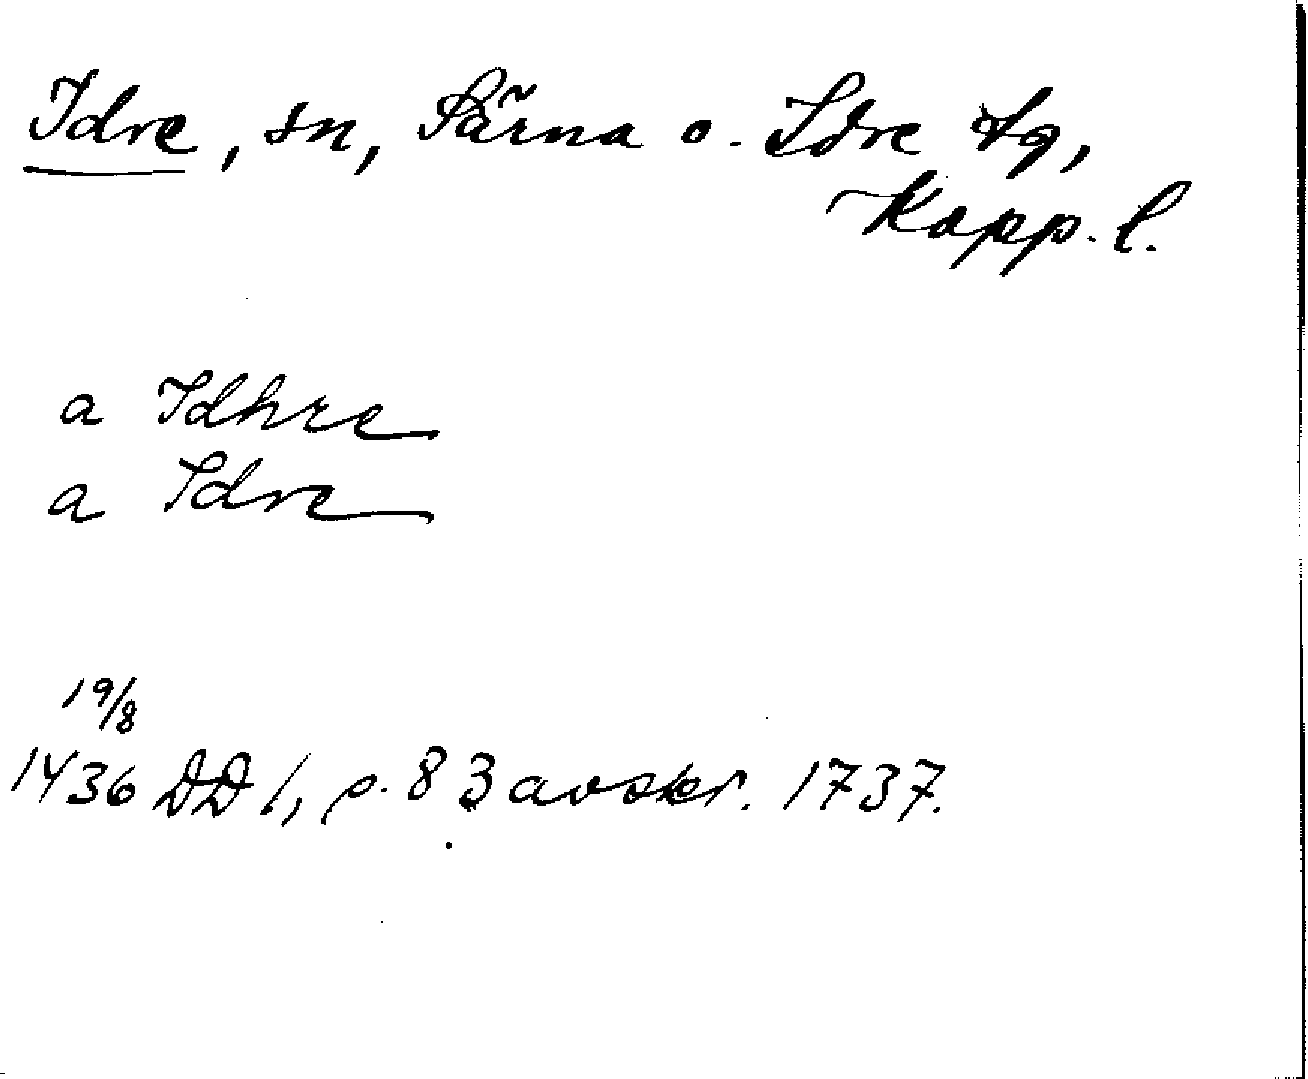 Idre, sn, Särna o. Idre tg,
Kopp. l.
a Idhre
a Idre
19/8
1436 DD 1, s. 83 avskr. 1737.